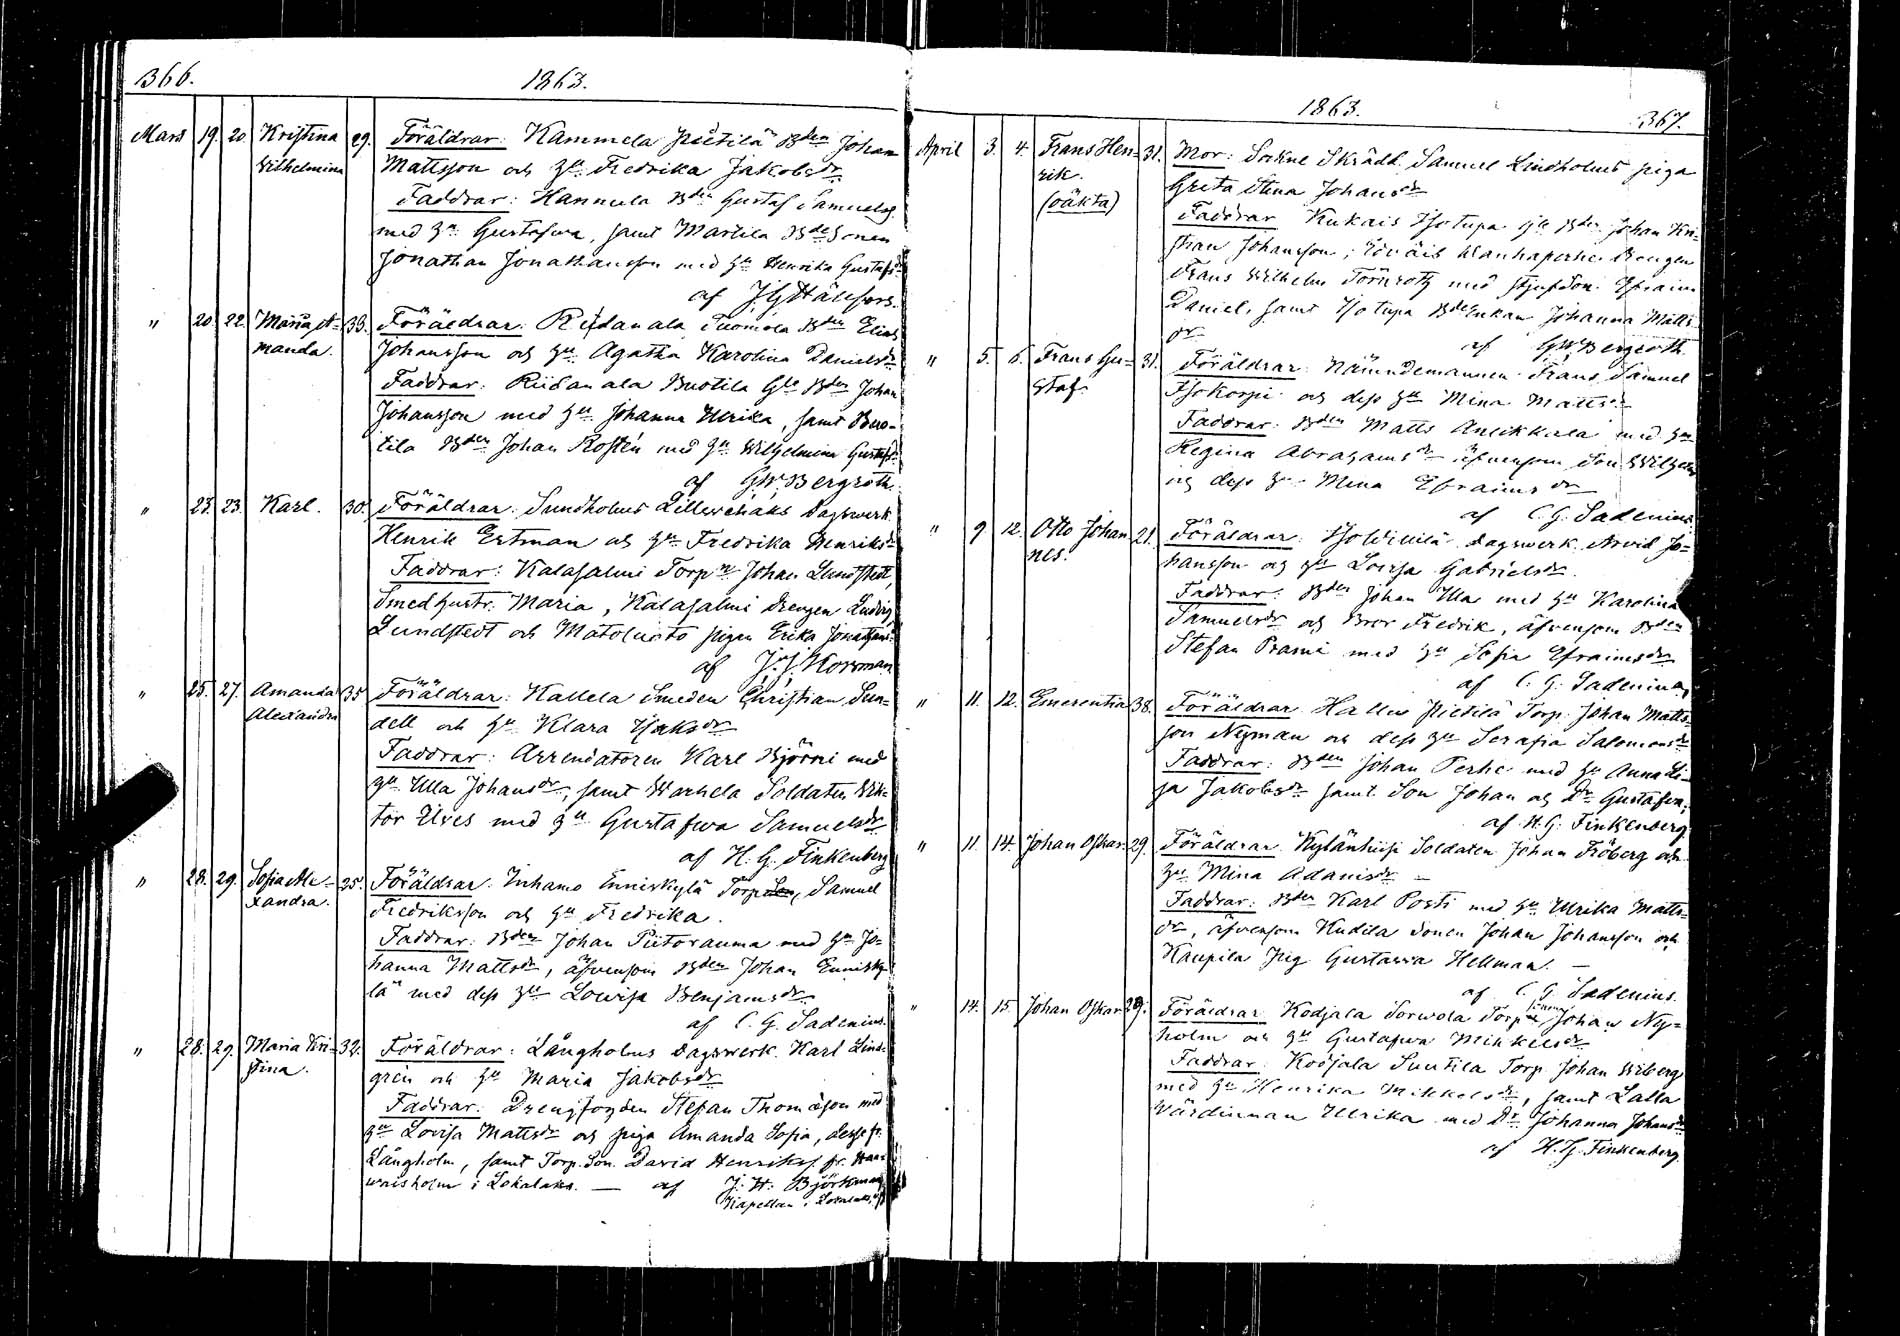 366. 1863.
Mars 19. 20. Kristina 29. Föräldrar: Kammela Pietilä Bden Johan
Wilhelmina Mattsson och hu Fredrika Jakobsdr
Faddrar: Hannula Bdn Gustaf Samuelss.
med hu Gustafwa, samt Martila Bde Sonen
Jonathan Jonathansson med hu Henrika Gustafsdr
af J G Hälsfors.
" 20. 22. Maria A- 33. Föräldrar: Tuomola Bden Elias
manda. Johansson och hu Agatha Karolina Danielsdr
Faddrar: Ruotila Gla Bden Johan
Johansson med hu Johanna Ulrika, samt Ruo-
tila Bden Johan Rostén med hu Wilhelmina Gustafsdr
af GW Bergroth.
" 23. 23. Karl. 30. Föräldrar: Sundholms Dagswerk.
Henrik Ertman och hu Fredrika Henriksdr
Faddrar: Kalasalmi Torpn Johan Lundstedt,
Smedhustr. Maria, Kalasalmi Drengen Ludvig
Lundstedt och Matoluoto pigan Erika Jonathansdr
af J. J. Norrman
" 25. 27. Amanda 35 Föräldrar: Kallela Smeden Christian Sun-
Alexandra dell och hu Klara Isaksdr
Faddrar: Arrendatoren Karl Björni med
hu Ulla Johansdr, samt Warhela Soldaten Wik-
tor Elves med hu Gustafwa Samuelsdr
af H. G. Finkenberg
" 28. 29. Sofia Ale- 25. Föräldrar: Inhamo Enniskylä Torp. Samuel
xandra. Fredriksson och hu Fredrika.
Faddrar: Bden Johan Piitorauma med hu Jo-
hanna Mattsdr, äfvensom Bden Johan Ennisky-
lä med dess hu Lowisa Benjamsdr
af C. G. Sadenius.
" 28. 29. Maria Kri- 32. Föräldrar: Långholms Dagswerk. Karl Lind-
stina. grén och hu Maria Jakobsdr
Faddrar: Drengfogden Stefan Thomasson med
hu Lovisa Mattsdr och piga Amanda Sofia, desse fr.
Långholm, samt Torp. Son David Henrikss. fr.
waisholm i Lokalaks. — af J. H. Björkman
Kapellan i Lokalaks
1863. 367.
April 3. 4. Frans Hen- 31. Mor: Sockne Skrädd. Samuel Lindholms piga
rik. Greta Stina Johansdr
(oäkta) Faddrar Kukais Isotupa Gla Bden Johan Kri-
stian Johansson, Wanhaperhe Drengen
Frans Wilhelm Törnrotz med styfson Efraim
Daniel, samt Isotupa Bde Enkan Johanna Matts-
dr
af GW Bergroth.
" 5. 6. Frans Gu- 31. Föräldrar: Nämndemannen Frans Samuel
staf. Isokorpi och dess hu Mina Mattsdr
Faddrar: Bden Matts Anikkala med hu
Regina Abrahamsdr äfvensom Son Wilhelm
och dess hu Mina Efraimsdr
af C. G. Sadenius.
" 9 12. Otto Johan- 21. Föräldrar: Dagswerk. Arvid Jo-
nes. hansson och hu Lovisa Gabrielsdr.
Faddrar: Bden Johan Ulla med hu Karolina
Samuelsdr och Bror Fredrik, äfvensom Bden
Stefan Prami med hu Sofia Efraimsdr
af C. G. Sadenius.
" 11. 12. Emerentia 38. Föräldrar Hallu Pietilä Torp. Johan Matts-
son Nyman och dess hu Serafia Salomonsdr
Faddrar: Bden Johan Perhe med hu Anna Li-
sa Jakobsdr samt Son Johan och Dr Gustafva,
af H. G. Finkenberg
" 11. 14. Johan Oskar. 29. Föräldrar Kylänhiisi Soldaten Johan Fröberg och
hu Mina Adamsdr —
Faddrar: Bden Karl Posti med hu Ulrika Matts-
dr, äfvensom Kudila Sonen Johan Johansson och
Kaupila Pig Gustawa Hellman. —
af C. G. Sadenius.
" 14. 15. Johan Oskar 29. Föräldrar Kodjala Sorwola Torp Johan Ny-
holm och hu Gustafwa Mikkelsdr
Faddrar: Kodjala Suutila Torp. Johan Wiberg
med hu Henrika Mikkelsdr, samt Lalla
Värdinnan Ulrika med Dr Johanna Johansdr
af H. G. Finkenberg.